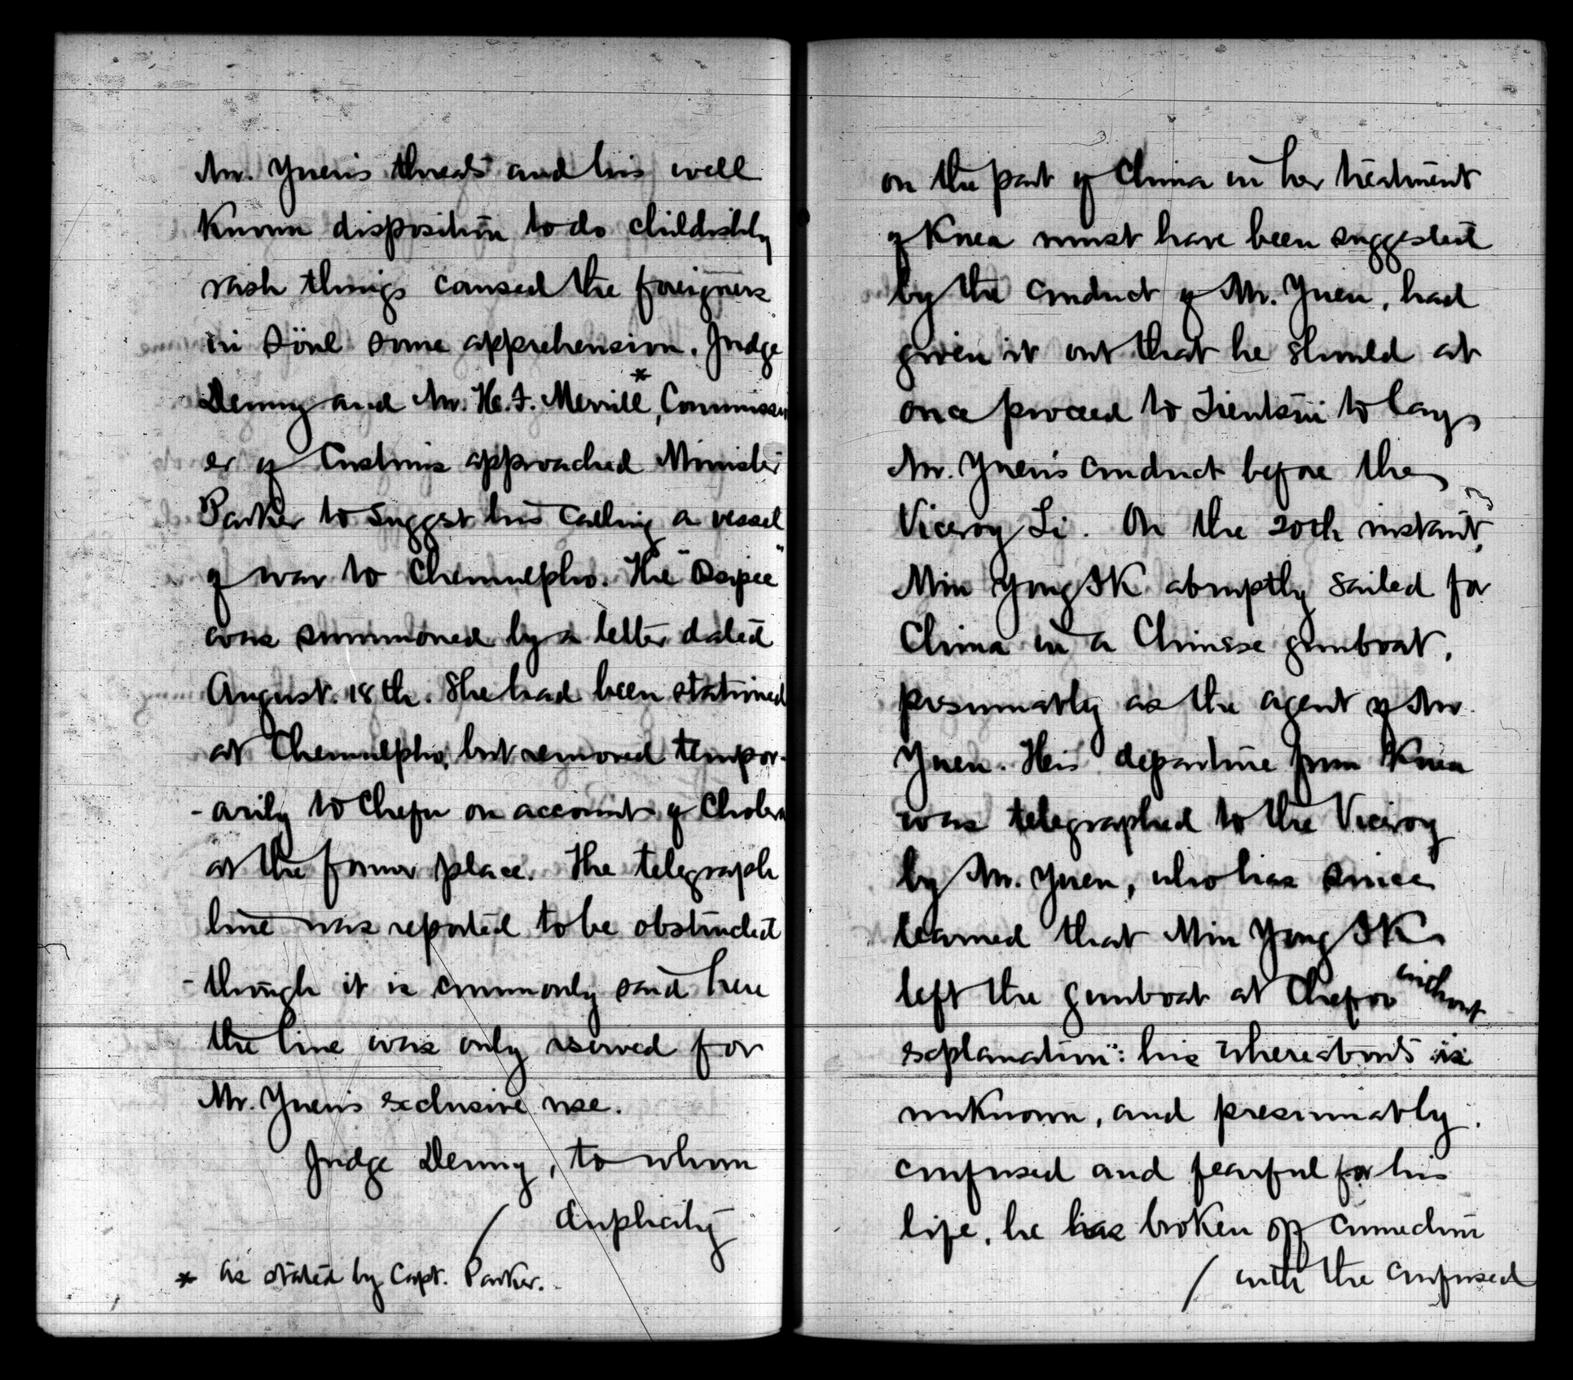 Mr. Yuen's threats and his well
known disposition to do childishly
rash things caused the foreigners
in Söul some apprehension. Judge
Denny and Mr. H. F. Merrill*, Commission
er of Customs approached Minister
Parker to suggest his calling a vessel
of war to Chemulpho. The "Ossipee"
was summoned by a letter dated
August 18th. She had been stationed
at Chemulpho, but removed tempor-
-arily to Chefu on account of Cholera
at the former place. The telegraph
line was reported to be obstructed
-though it is commonly said here
the line was only reserved for
Mr. Yuen's exclusive use.
Judge Denny, to whom
/ duplicity
* as stated by Capt. Parker.
on the part of China in her treatment
of Korea must have been suggested
by the conduct of Mr. Yuen, had
given it out that he should at
once proceed to Tientsin to lay
Mr. Yuen's conduct before the
Viceroy Li. On the 20th instant,
Min Yong IK abruptly sailed for
China in a Chinese gunboat,
presumably as the agent of Mr.
Yuen. His departure from Korea
was telegraphed to the Viceroy
by Mr. Yuen, who has since
learned that Min Yong IK
left the gunboat at Chefoo without
explanation: his whereabouts is
unknown, and presumably.
confused and fearful for his
life, he has broken off connection
/ with the confused